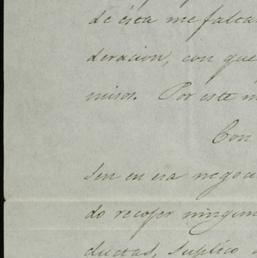 de ésta me falta
deracion, con que
misos. Por este m
Con
sen en esa negoci
do recoger ningun
ductas, suplico